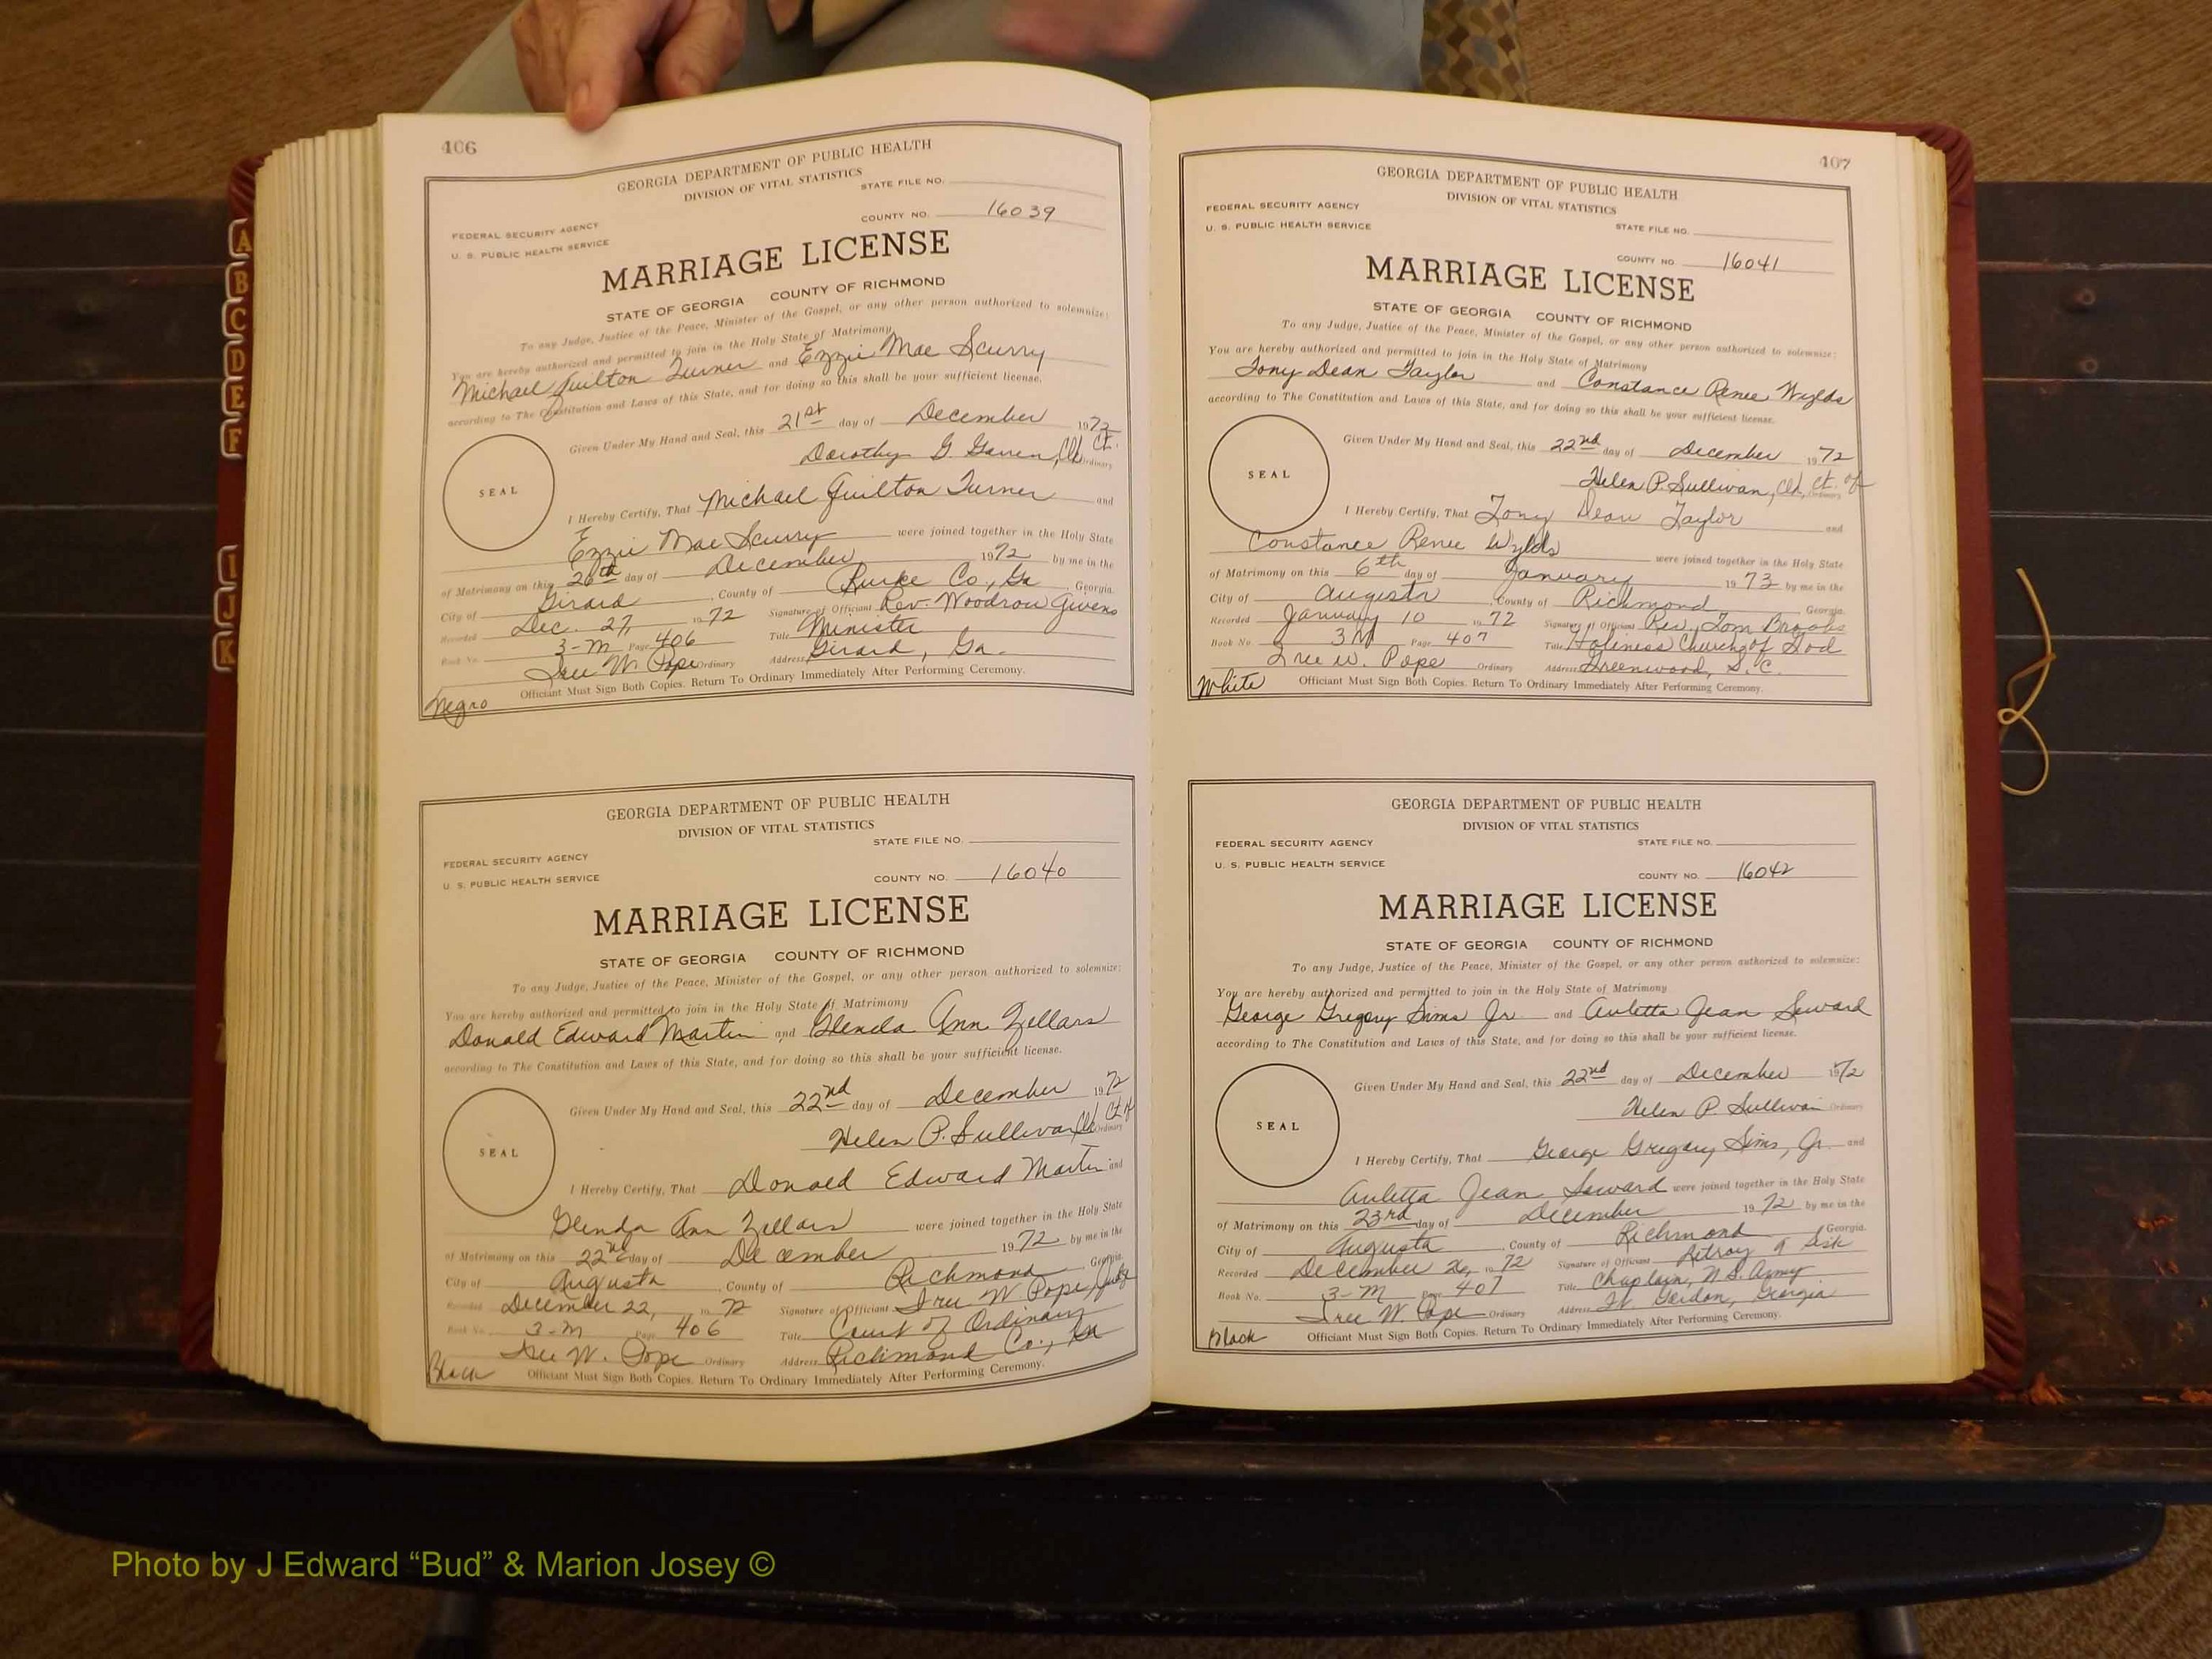 406
GEORGIA DEPARTMENT OF PUBLIC HEALTH
DIVISION OF VITAL STATISTICS
STATE FILE NO.
FEDERAL SECURITY AGENCY
U. S. PUBLIC HEALTH SERVICE
COUNTY NO. 16039
MARRIAGE LICENSE
STATE OF GEORGIA COUNTY OF RICHMOND
To any Judge, Justice of the Peace, Minister of the Gospel, or any other person authorized to solemnize:
You are hereby authorized and permitted to join in the Holy State of Matrimony
Michael Guilton Turner and Ezzie Mae Scurry
according to The Constitution and Laws of this State, and for doing so this shall be your sufficient license.
Given Under My Hand and Seal, this 21st day of December 1972
Dorothy G. Clk Ct. Ordinary
SEAL
I Hereby Certify, That Michael Guilton Turner and
Ezzie Mae Scurry were joined together in the Holy State
of Matrimony on this 26th day of December 1972 by me in the
City of Girard, County of Burke Co., Ga Georgia.
Recorded Dec. 27, 1972 Signature of Officiant Rev. Woodrow Givens
Book No. 3-M Page 406 Title Minister
Iree W. Pope Ordinary Address Girard, Ga.
Officiant Must Sign Both Copies. Return To Ordinary Immediately After Performing Ceremony.
Negro
GEORGIA DEPARTMENT OF PUBLIC HEALTH
DIVISION OF VITAL STATISTICS
STATE FILE NO.
FEDERAL SECURITY AGENCY
U. S. PUBLIC HEALTH SERVICE
COUNTY NO. 16040
MARRIAGE LICENSE
STATE OF GEORGIA COUNTY OF RICHMOND
To any Judge, Justice of the Peace, Minister of the Gospel, or any other person authorized to solemnize:
You are hereby authorized and permitted to join in the Holy State of Matrimony
Donald Edward Martin and Glenda Ann Zellars
according to The Constitution and Laws of this State, and for doing so this shall be your sufficient license.
Given Under My Hand and Seal, this 22nd day of December 1972
Helen P. Sullivan Clk Ct. Ordinary
SEAL
I Hereby Certify, That Donald Edward Martin and
Glenda Ann Zellars were joined together in the Holy State
of Matrimony on this 22nd day of December 1972 by me in the
City of Augusta, County of Richmond Georgia.
Recorded December 22, 1972 Signature of Officiant Iree W Pope, Judge
Book No. 3-M Page 406 Title Court of Ordinary
Iree W. Pope Ordinary Address Richmond Co., Ga
Black Officiant Must Sign Both Copies. Return To Ordinary Immediately After Performing Ceremony.
407
GEORGIA DEPARTMENT OF PUBLIC HEALTH
DIVISION OF VITAL STATISTICS
FEDERAL SECURITY AGENCY
U. S. PUBLIC HEALTH SERVICE
STATE FILE NO.
COUNTY NO. 16041
MARRIAGE LICENSE
STATE OF GEORGIA COUNTY OF RICHMOND
To any Judge, Justice of the Peace, Minister of the Gospel, or any other person authorized to solemnize:
You are hereby authorized and permitted to join in the Holy State of Matrimony
Tony Dean Taylor and Constance Renee Wylds
according to The Constitution and Laws of this State, and for doing so this shall be your sufficient license.
Given Under My Hand and Seal, this 22nd day of December 1972
Helen P. Sullivan, Clk, Ct. of Ordinary
SEAL
I Hereby Certify, That Tony Dean Taylor and
Constance Renee Wylds were joined together in the Holy State
of Matrimony on this 6th day of January 1973 by me in the
City of Augusta, County of Richmond Georgia.
Recorded January 10 1972 Signature of Officiant Rev. Tom Brooks
Book No. 3M Page 407 Title Holiness Church of God
Iree W. Pope Ordinary Address Greenwood, S.C.
White Officiant Must Sign Both Copies. Return To Ordinary Immediately After Performing Ceremony.
GEORGIA DEPARTMENT OF PUBLIC HEALTH
DIVISION OF VITAL STATISTICS
FEDERAL SECURITY AGENCY STATE FILE NO.
U. S. PUBLIC HEALTH SERVICE
COUNTY NO. 16042
MARRIAGE LICENSE
STATE OF GEORGIA COUNTY OF RICHMOND
To any Judge, Justice of the Peace, Minister of the Gospel, or any other person authorized to solemnize:
You are hereby authorized and permitted to join in the Holy State of Matrimony
George Gregory Sims Jr and Auletta Jean Seward
according to The Constitution and Laws of this State, and for doing so this shall be your sufficient license.
Given Under My Hand and Seal, this 22nd day of December 1972
Helen P. Sullivan Ordinary
SEAL
I Hereby Certify, That George Gregory Sims, Jr. and
Auletta Jean Seward were joined together in the Holy State
of Matrimony on this 23rd day of December 1972 by me in the
City of Augusta, County of Richmond Georgia.
Recorded December 26, 1972 Signature of Officiant Sisk
Book No. 3-M Page 407 Title Chaplain, U.S. Army
Iree W. Pope Ordinary Address Ft Gordon, Georgia
Black Officiant Must Sign Both Copies. Return To Ordinary Immediately After Performing Ceremony.
A
B
C
D
E
F
I
J
K
Photo by J Edward “Bud” & Marion Josey ©